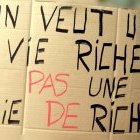 N VEUT U
VIE RICHE
PAS UNE
IE DE RICH